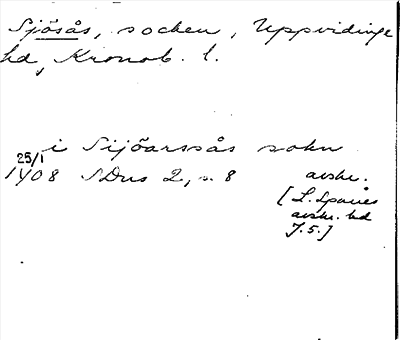 Sjösås, socken, Uppvidinge
hd, Kronob. l.
i Sijöarssås sokn
25/1
1408 SDns 2, s. 8 avskr.
[L. Spaues
avskr. bd
7.5.]